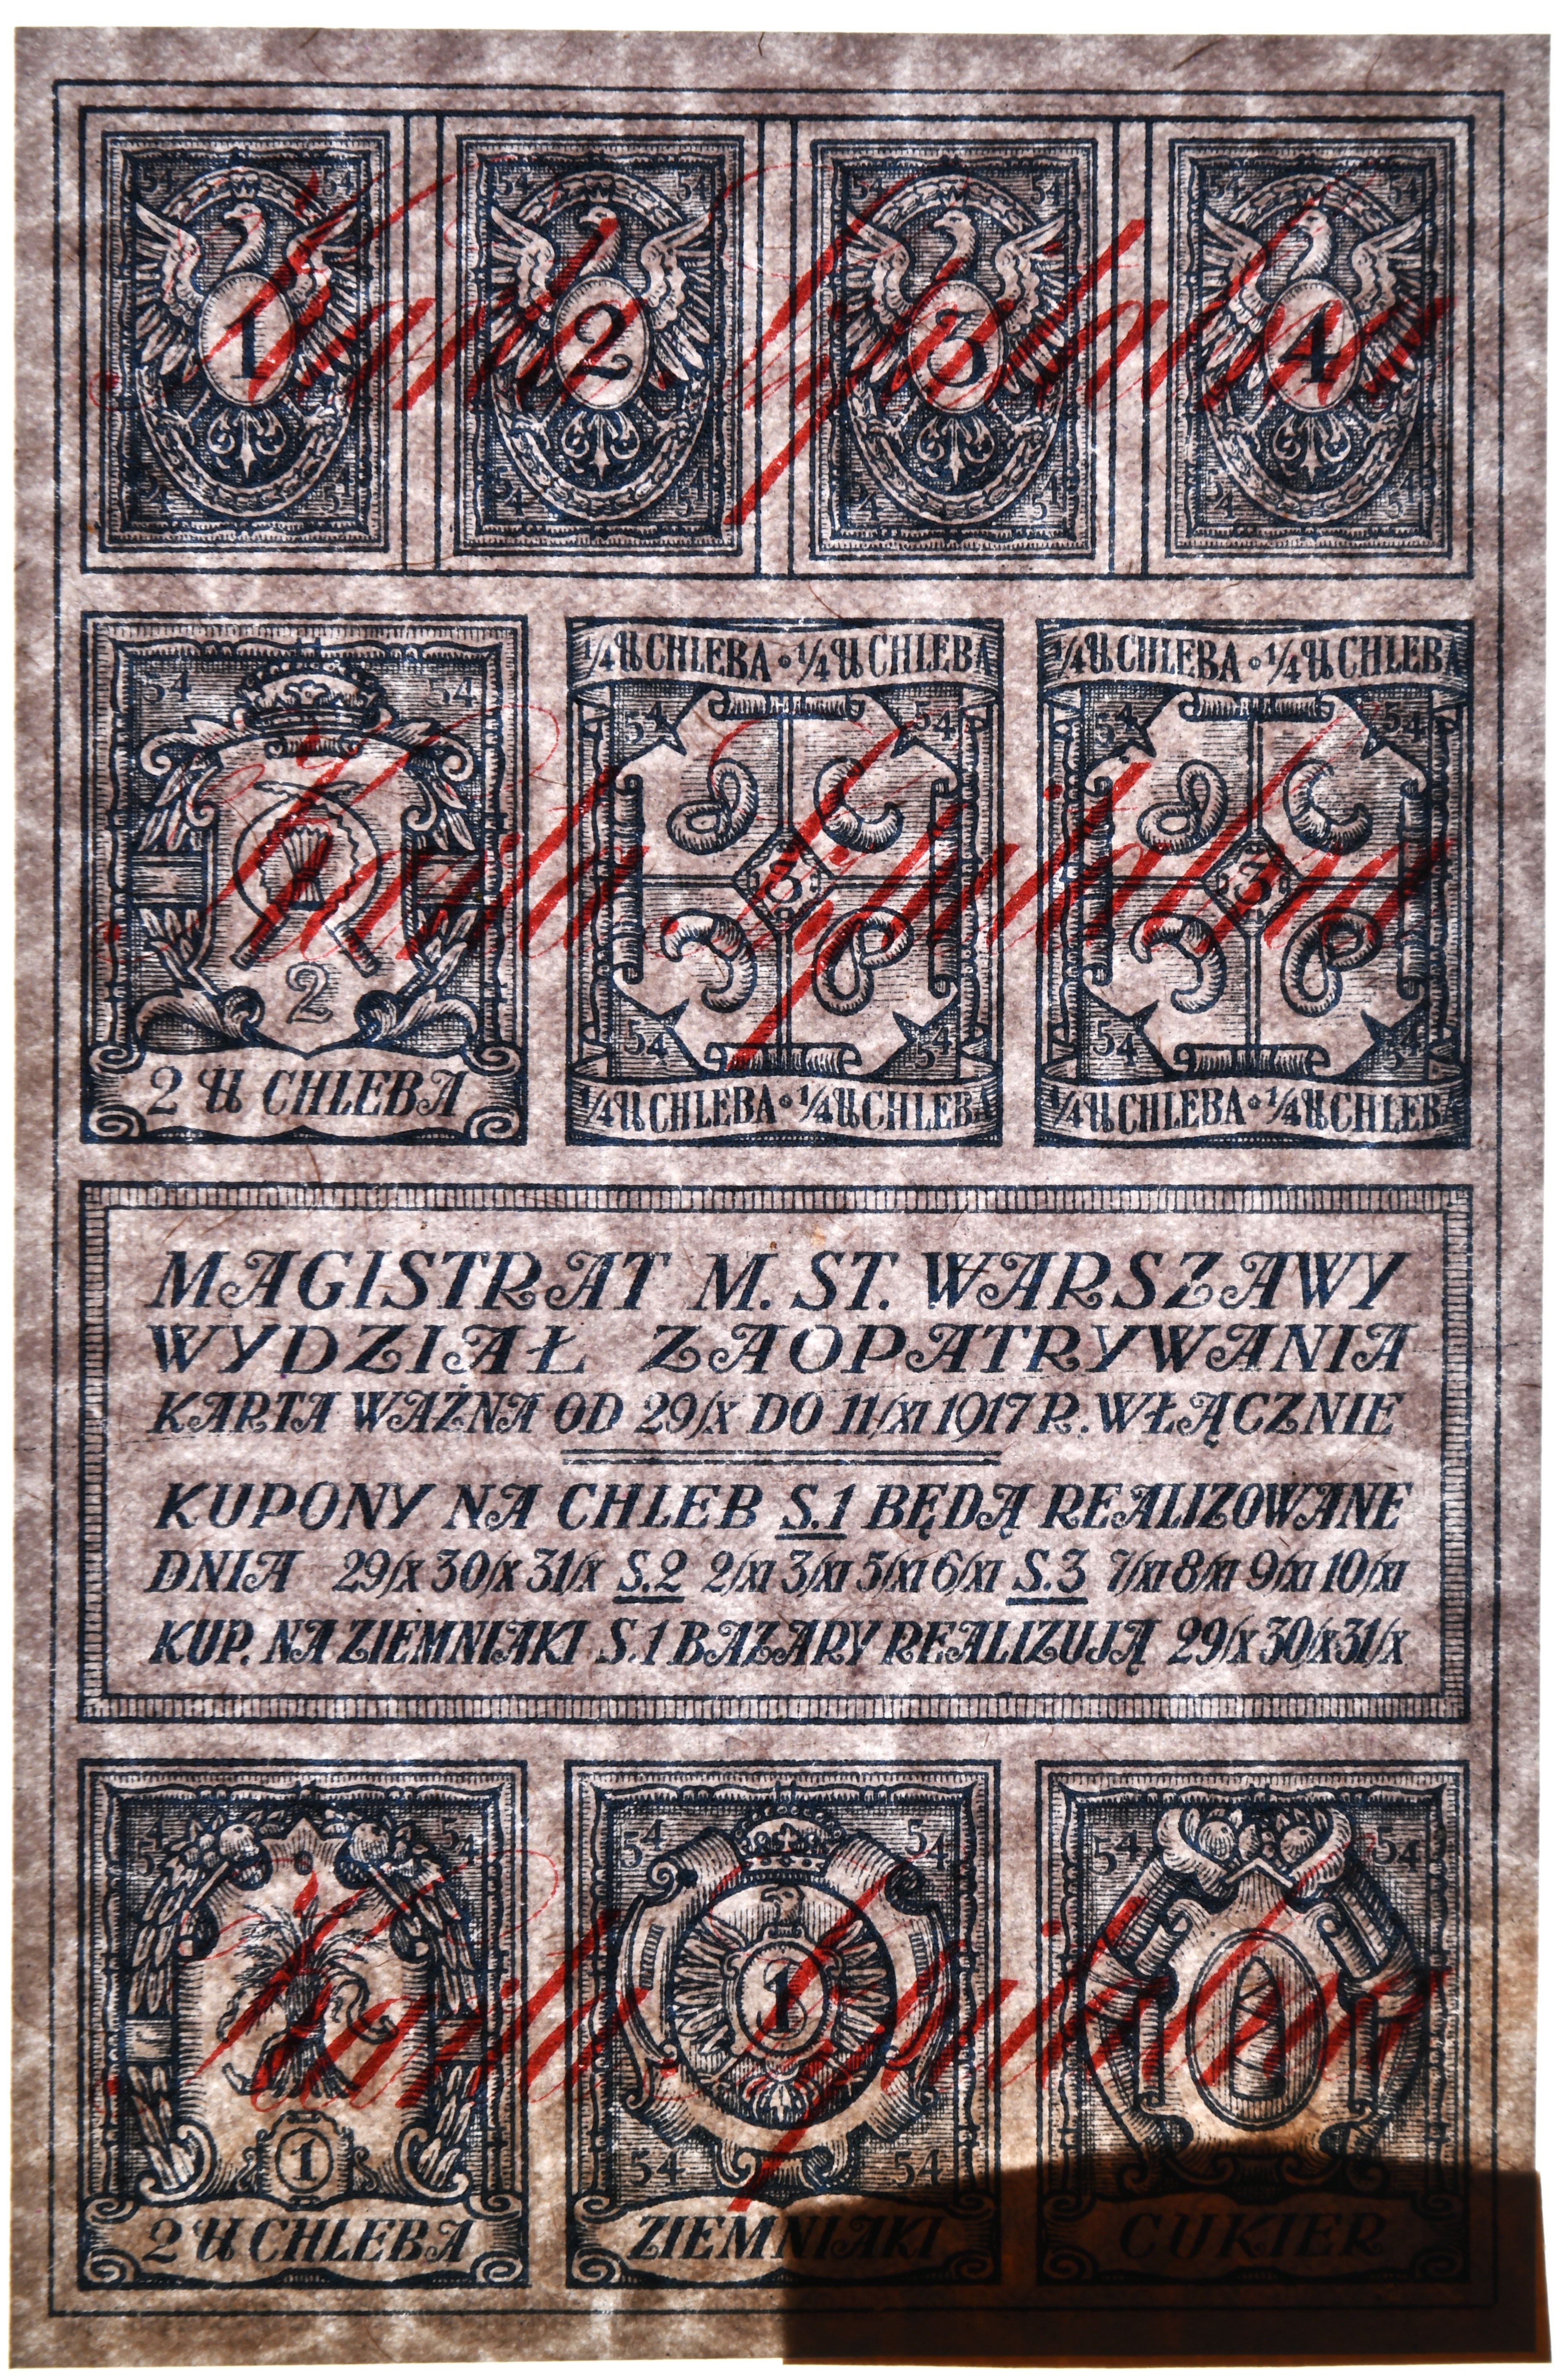 54 54 54 54 54 54 54 54
1 2 3 4
54 54 54 54 54 54 54 54
54 54
¼ ℔ CHLEBA • ¼ ℔ CHLEBA
¼ ℔ CHLEBA • ¼ ℔ CHLEBA
54 54 54 54
3 3
2
54 54 54 54
2 ℔ CHLEBA
¼ ℔ CHLEBA • ¼ ℔ CHLEBA
¼ ℔ CHLEBA • ¼ ℔ CHLEBA
MAGISTRAT M. ST. WARSZAWY
WYDZIAŁ ZAOPATRYWANIA
KARTA WAŻNA OD 29/X DO 11/XI 1917 R. WŁĄCZNIE
KUPONY NA CHLEB S.1 BĘDĄ REALIZOWANE
DNIA 29/X 30/X 31/X S.2 2/XI 3/XI 5/XI 6/XI S.3 7/XI 8/XI 9/XI 10/XI
KUP. NA ZIEMNIAKI S.1 BAZARY REALIZUJĄ 29/X 30/X 31/X
54 54 54 54 54 54
1
1
54 54
2 ℔ CHLEBA
ZIEMNIAKI
CUKIER